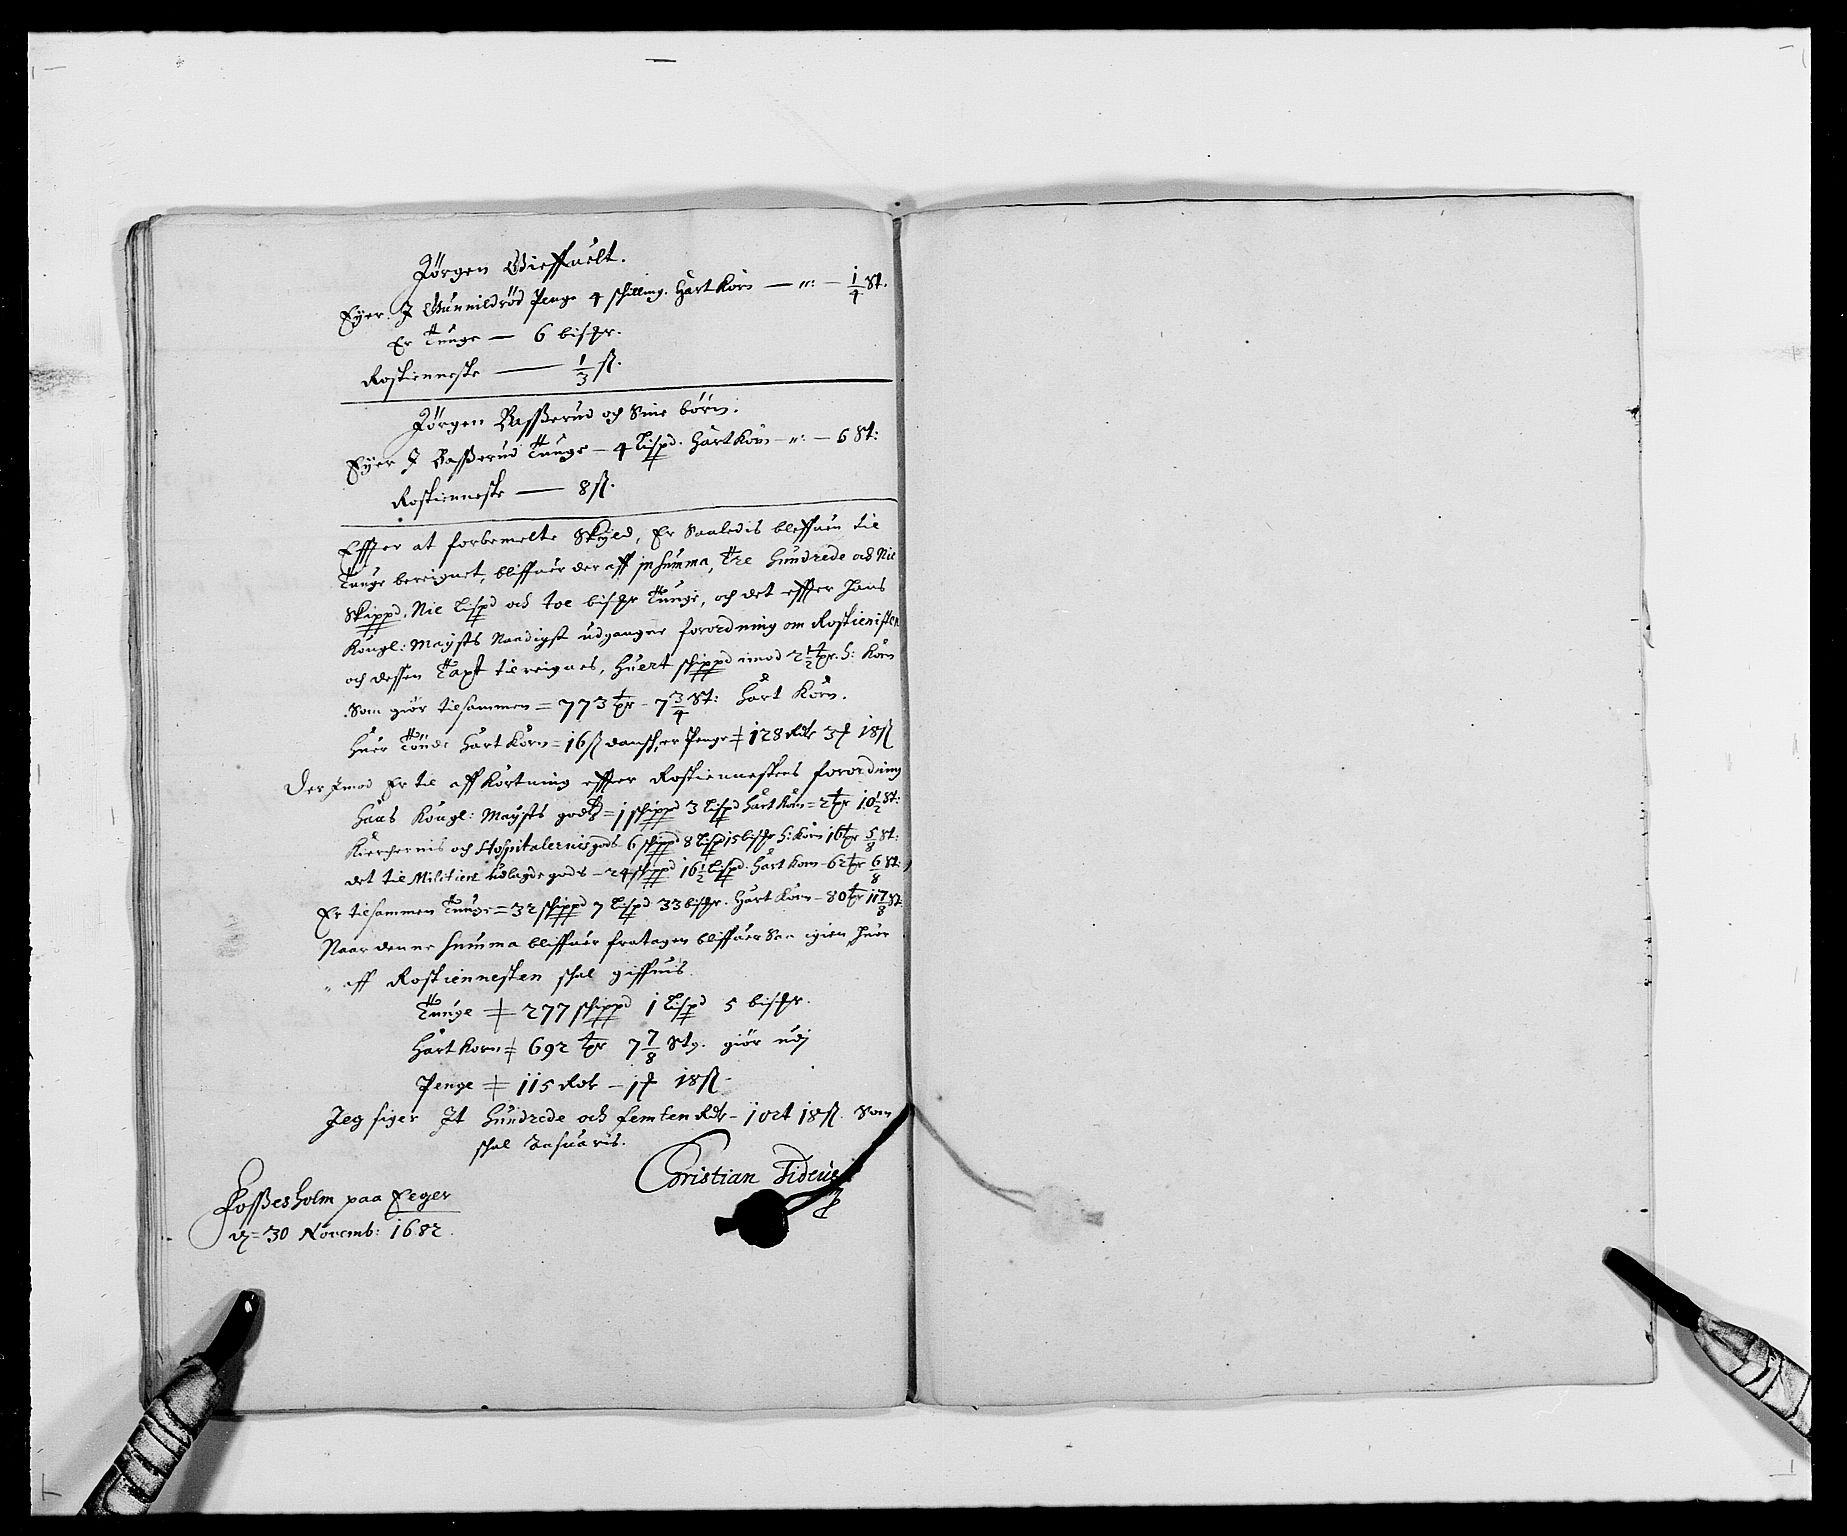 Jørgen Gieffuelt.
Eyer J Gunnildrød Penge 4 schilling. Hart Korn — n: — 1/4 St.
Er Tunge — 6 bisfr.
Rostienneste — 1/3 ß.
Jørgen Basserud och Sine børn.
Eyer J Basserud Tunge — 4 Lispd. Hart Korn — n: — 6 St:
Rostienneste — 8 ß.
Effter at forbemelte Skyld, Er Saaledis bleffuen til
Tunge bereignet, bliffuer der aff in summa, Tre Hundrede och Nie
Skippd. Nie Lispd och toe bisfr Tunge, och det effter Hans
Kongl: Maÿsts Naadigst udgangne forordning om Rostienisten
och dessen Taxt tilreignes, Huert schippd imod 2 1/2 tr. H: Korn
Som giør tilsammen = 773 tr - 7 3/4 St: Hart Korn.
Huer Tønde Hart Korn = 16 ß dansch, er Penge = 128 Rdr 3 # 18 ß
Der Jmod Er til aff Kortning effter Rostiennestens forordning
Hans Kongl: Maÿsts gods = 1 schippd 3 Lispd Hart Korn = 2 tr 10 1/2 St:
Kierchernis och Hospitalernis gods 6 schippd 8 Lispd 15 bisfr H: Korn 16 tr 5/8 St:
det til Militien udlagde gods — 24 schippd 16 1/2 Lispd. Hart Korn - 62 tr 6/8 St:
Er tilsammen Tunge = 32 schippd 7 Lispd 33 bisfr. Hart Korn — 80 tr 11 7/8 St.
Naar denne Summa bliffuer fratagen bliffuer Saa igien, Huor
aff Rostiennesten schal giffuis.
Tunge = 277 schippd 1 Lispd 5 bisfr.
Hart Korn = 692 tr 7 7/8 St. giør udj
Penge = 115 Rdr — 1 # 18 ß -
Jeg siger Jt Hundrede och femten Rdr — 1 ort 18 ß. Som
schal
Christian
Fossesholm paa Eeger
30 Novemb: 1682.